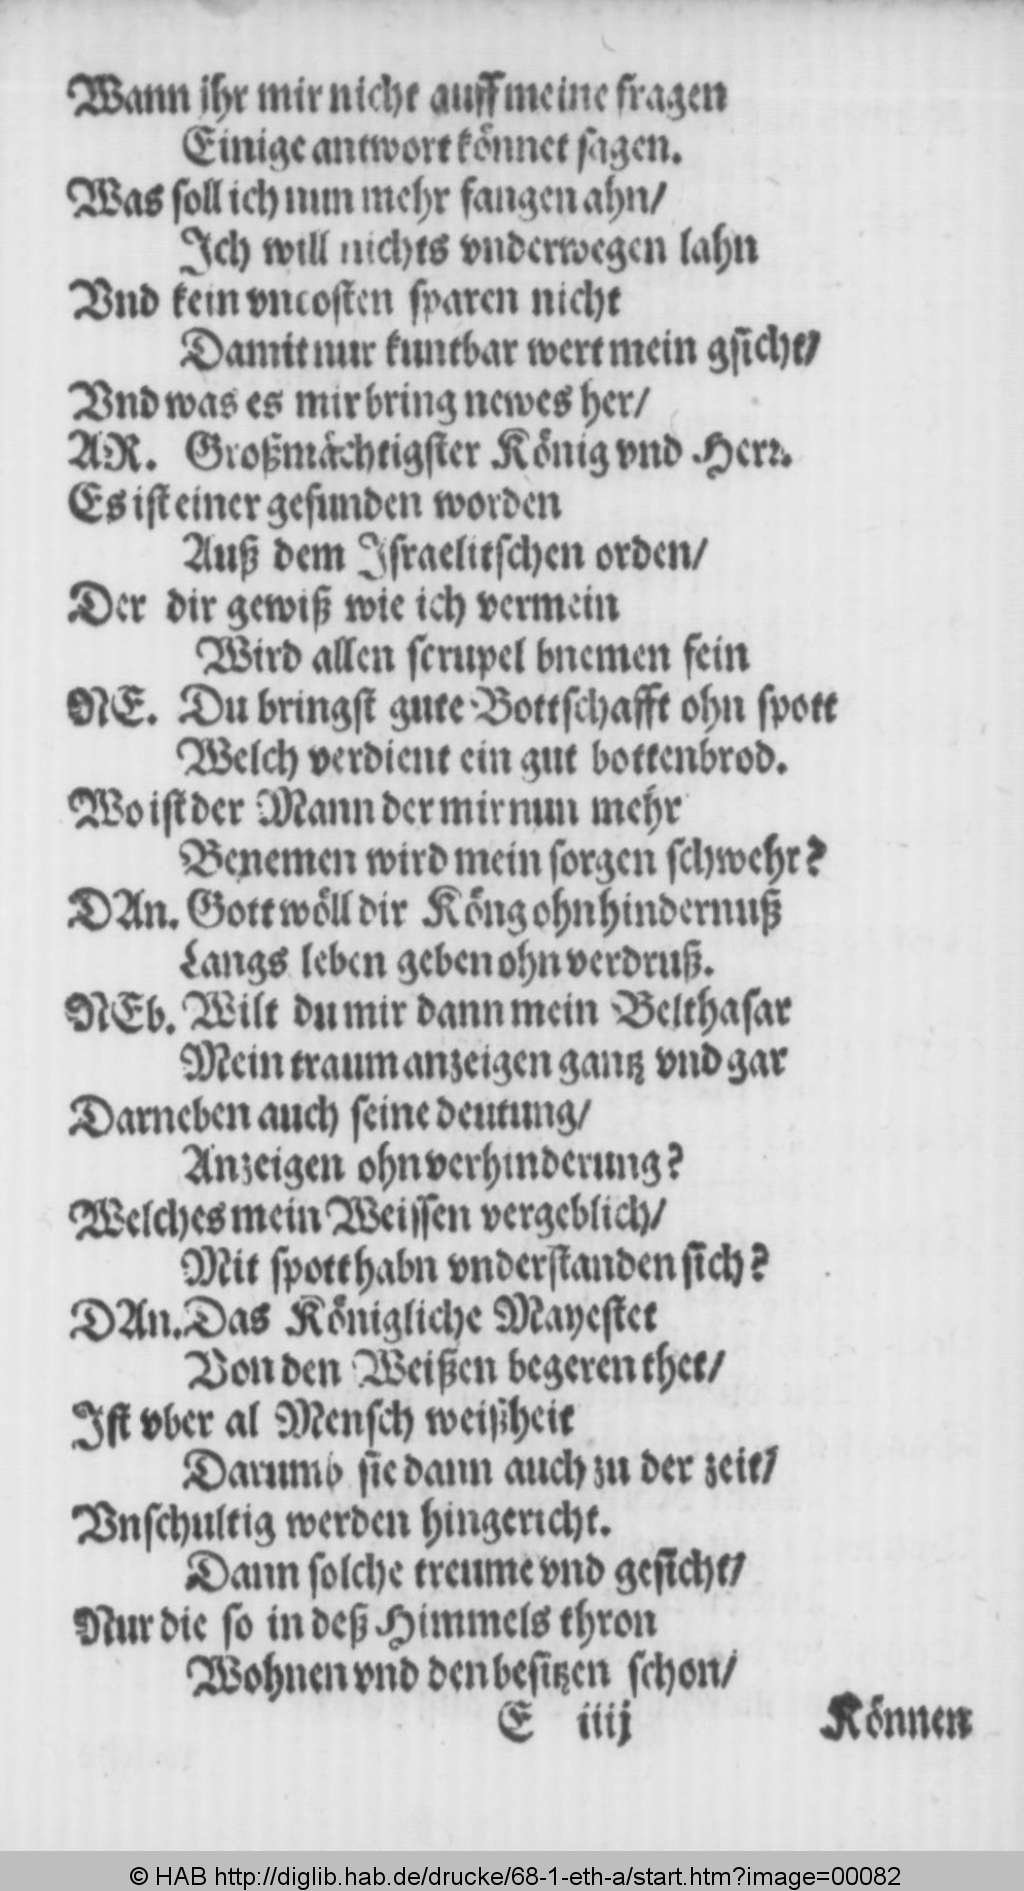 Wann jhr mir nicht auff meine fragen
Einige antwort könnet sagen.
Was soll ich nun mehr fangen ahn/
Ich will nichts vnderwegen lahn
Vnd kein vncosten sparen nicht
Damit nur kuntbar wert mein gsicht/
Vnd was es mir bring newes her/
AR. Großmächtigster König vnd Herr.
Es ist einer gefunden worden
Auß dem Israelitschen orden/
Der dir gewiß wie ich vermein
Wird allen scrupel bnemen fein
NE. Du bringst gute Bottschafft ohn spott
Welch verdient ein gut bottenbrod.
Wo ist der Mann der mir nun mehr
Benemen wird mein sorgen schwehr?
DAn. Gott wöll dir Köng ohn hindernuß
Langs leben geben ohn verdruß.
NEb. Wilt du mir dann mein Belthasar
Mein traum anzeigen gantz vnd gar
Darneben auch seine deutung/
Anzeigen ohn verhinderung?
Welches mein Weissen vergeblich/
Mit spott habn vnderstanden sich?
DAn. Das Königliche Mayestet
Von den Weißen begeren thet/
Ist vber al Mensch weißheit
Darumb sie dann auch zu der zeit/
Vnschultig werden hingericht.
Dann solche treume vnd gesicht/
Nur die so in deß Himmels thron
Wohnen vnd den besitzen schon/
E iiij Können
© HAB http://diglib.hab.de/drucke/68-1-eth-a/start.htm?image=00082